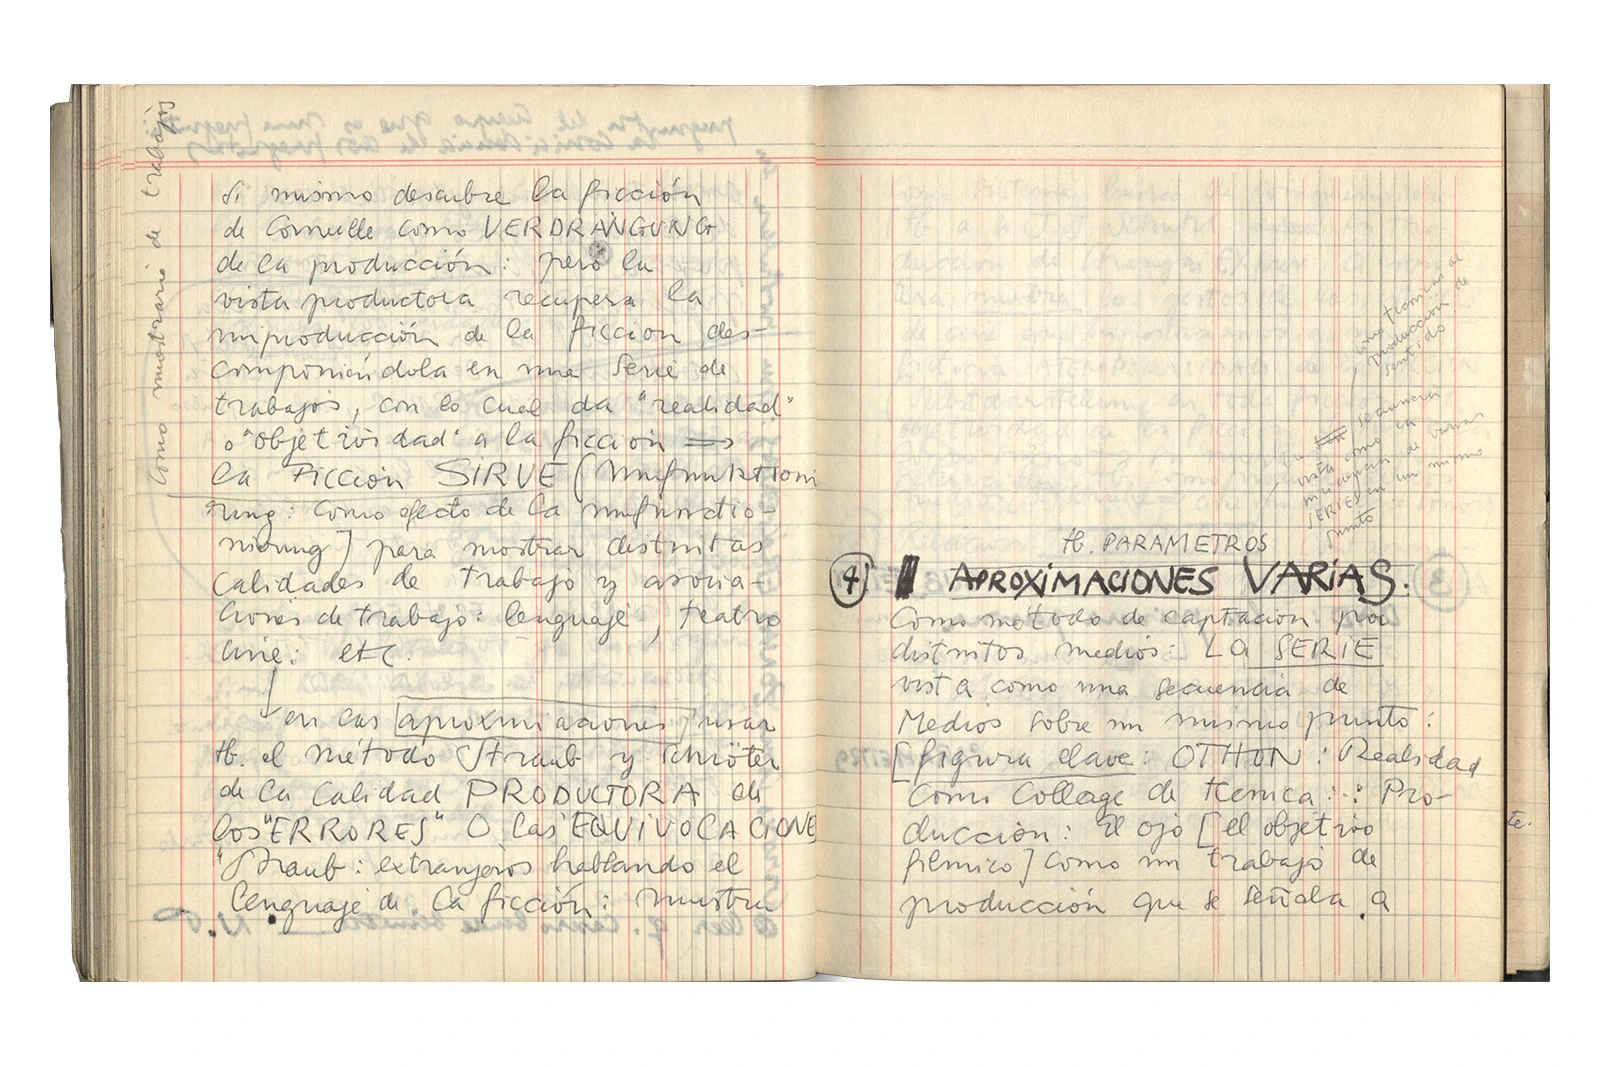 Como muestrario de trabajos
si mismo descubre la ficción
de Corneille como VERDRÄNGUNG
de la producción: pero la
vista productora recupera la
producción de la ficcion des-
componiéndola en una serie de
trabajos, con lo cual da "realidad"
o "objetividad" a la ficcion ⟹
la Ficción SIRVE (Umfunktioni
rung: como efecto de la umfunctio-
nierung] para mostrar distintas
calidades de trabajo y asocia-
ciones de trabajo: lenguaje, teatro
cine: etc.
en las aproximaciones usar
tb. el método Straub y Schröter
de la calidad PRODUCTORA de
los "ERRORES" O las EQUIVOCACIONE
"Straub: extranjeros hablando el
lenguaje de la ficción: muestra
como técnicas de
producción de
sentido
secuencia
vista como
secuencia de varias
SERIES en un mismo
punto
tb. PARAMETROS
4 APROXIMACIONES VARIAS.
Como método de captación por
distintos medios: LA SERIE
vista como una secuencia de
Medios sobre un mismo punto:
[figura clave: OTHON: Realidad
como Collage de tecnica: Pro-
ducción: el ojo [el objetivo
filmico] como un trabajo de
producción que se señala a
te.